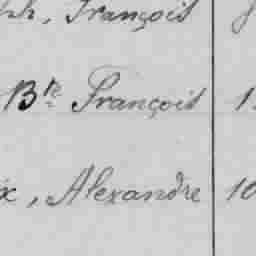 , François
Bte François
, Alexandre 10